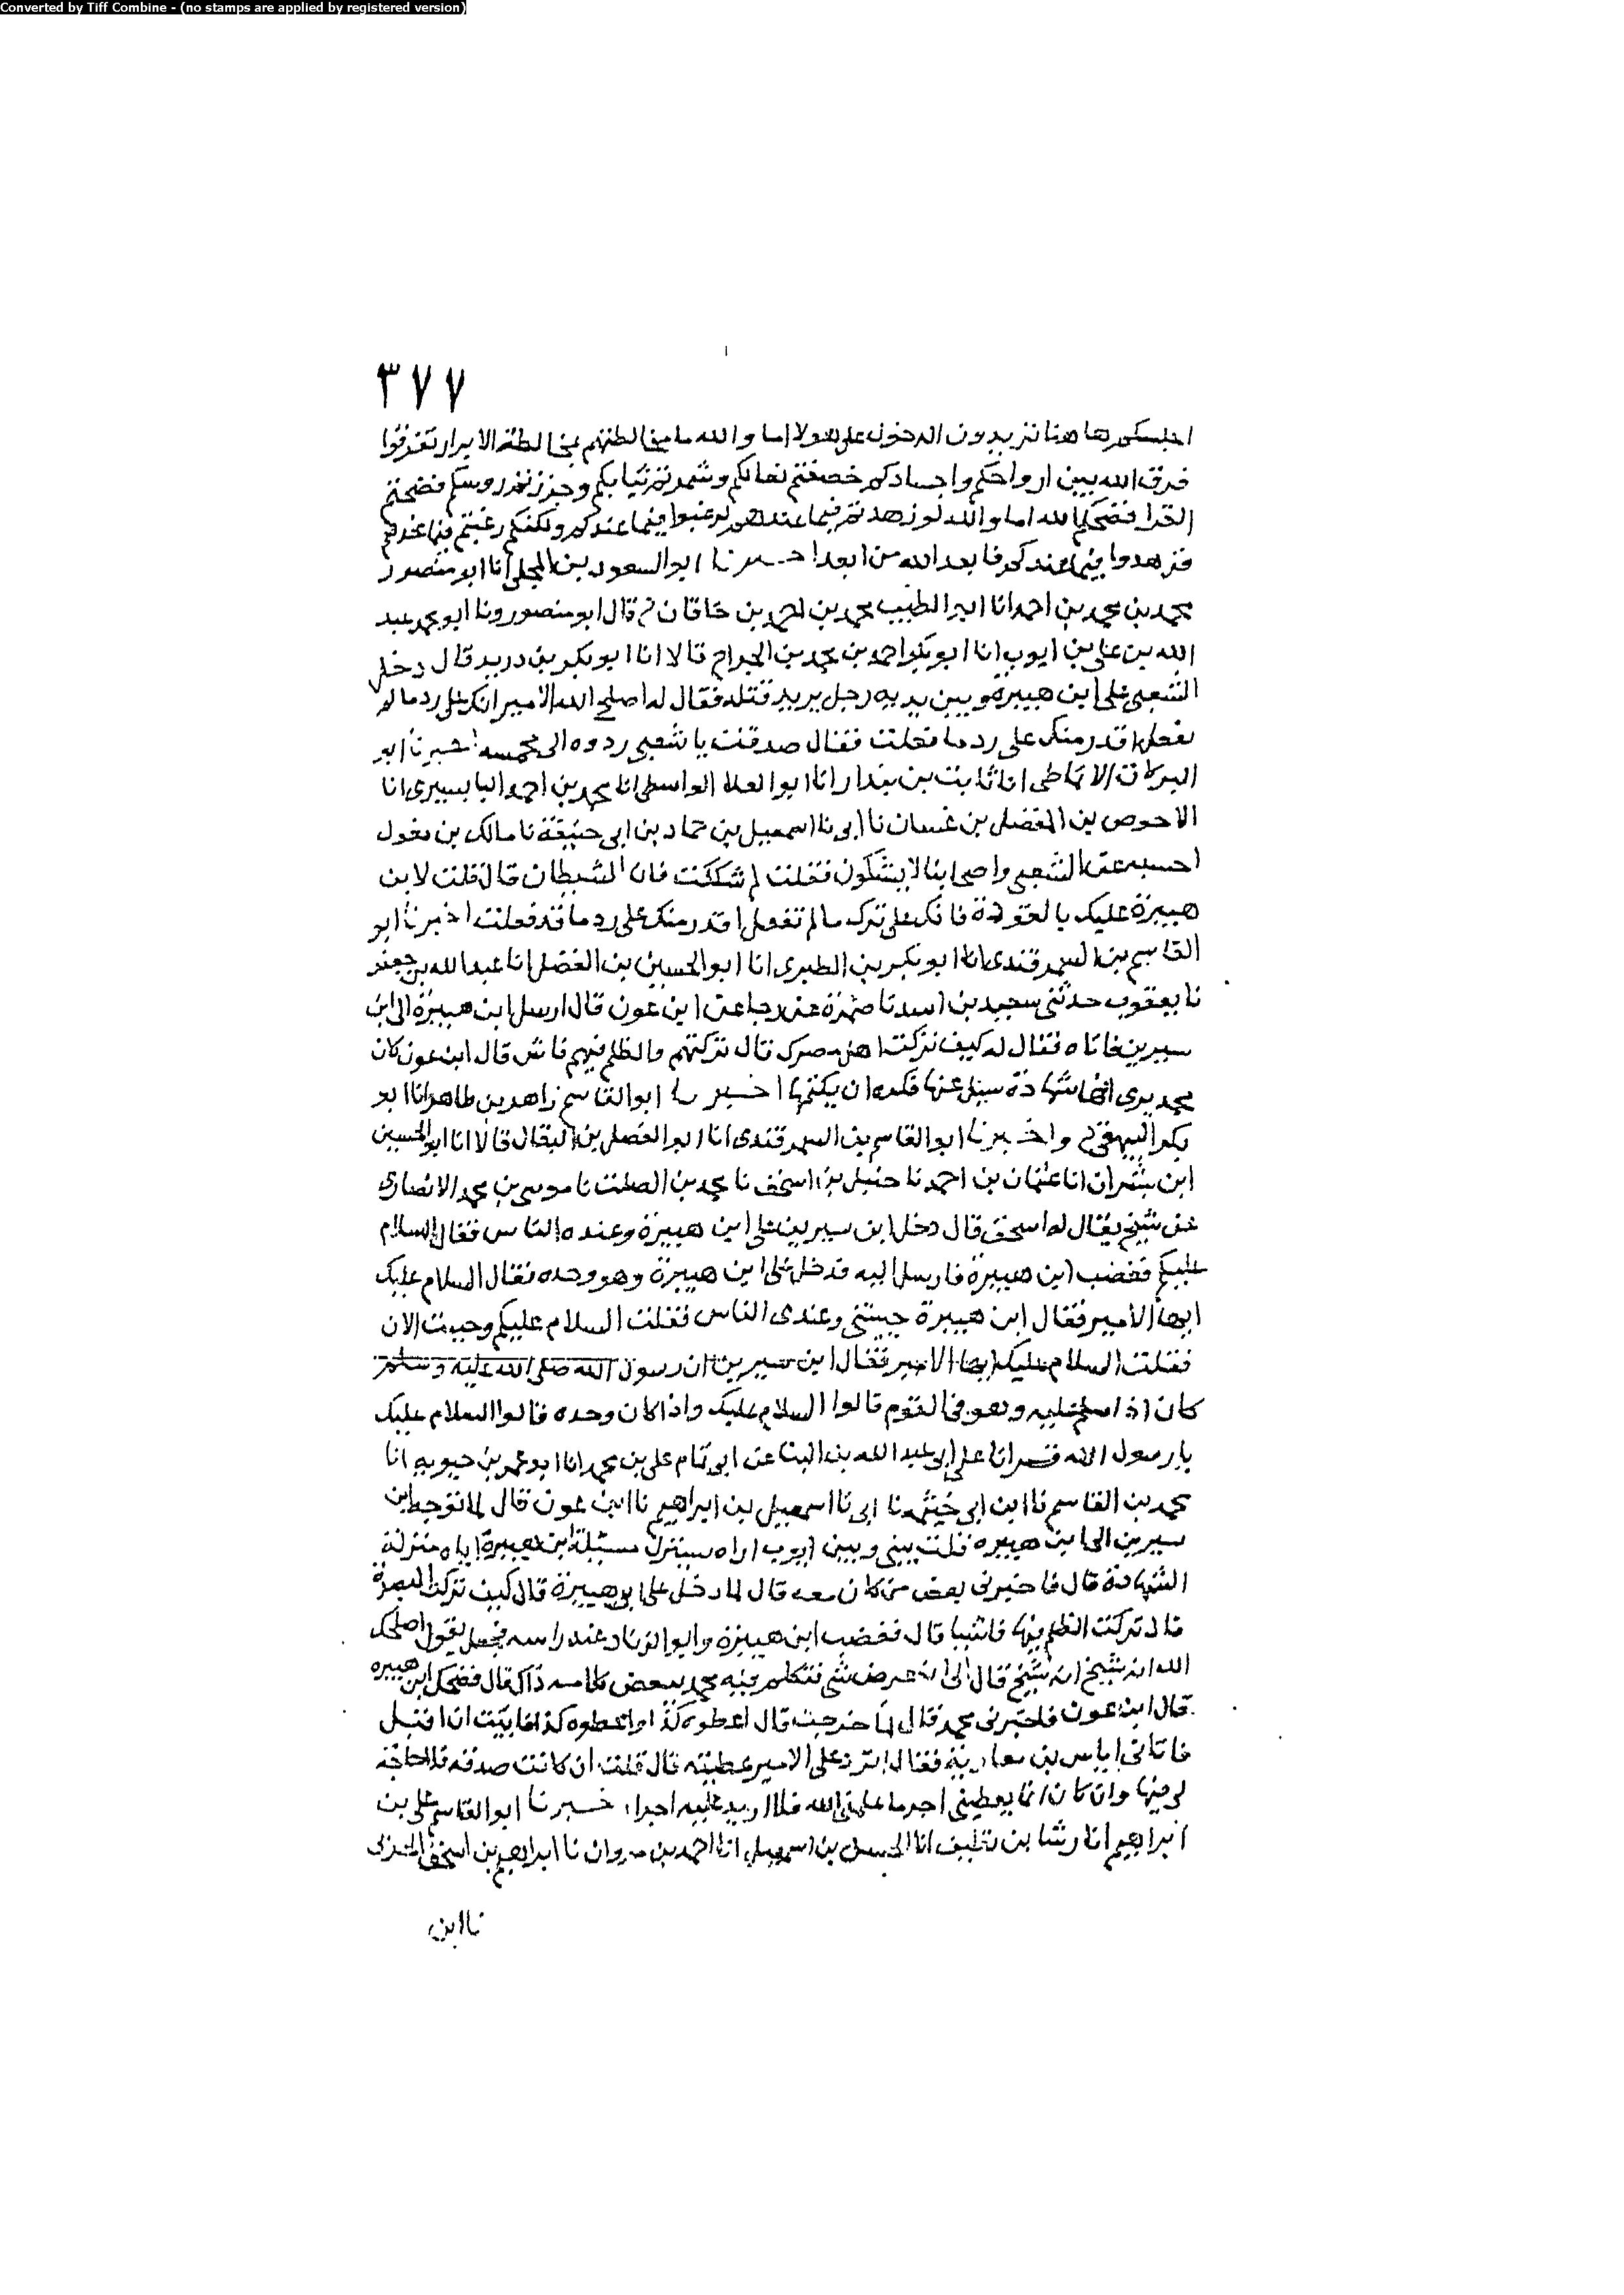 Converted by Tiff Combine - (no stamps are applied by registered version)
٣٧٧
اجلسكم هاهنا تريدون الدخول على هولا اما والله ما مخالطتهم بمخالطة الابرار تفرقوا
فرق الله بين ارواحكم واجسادكم خصفتم نعالكم وشمرتم ثيابكم وجززتم روسكم فضحتم
القرا فضحكم الله اما والله لو زهدتم فيما عندهم لرغبوا فيما عندكم ولكنكم رغبتم فيما عندهم
فزهدوا فيما عندكم فابعد الله من ابعد اخبرنا ابو السعود بن المجلي انا ابو منصور
محمد بن محمد بن احمد انا ابو الطيب محمد بن احمد بن خاقان ح قال ابو منصور ونا ابو محمد عبد
الله بن علي بن ايوب انا ابو بكر احمد بن محمد بن الجراح قالا انا ابو بكر بن دريد قال دخل
الشعبي على ابن هبيرة وبين يديه رجل يريد قتله فقال له اصلح الله الامير انك على رد ما لم
تفعل اقدر منك على رد ما فعلت فقال صدقت يا شعبي ردوه الى محبسه اخبرنا ابو
البركات الانماطي انا ثابت بن بندار انا ابو العلا الواسطي انا محمد بن احمد البابسيري انا
الاحوص بن المفضل بن غسان نا ابي نا اسمعيل بن حماد بن ابي حنيفة نا مالك بن مغول
احسبه عن الشعبي واصحابنا لا يشكون فقلت لم شككت فان الشيطان قال قلت لابن
هبيرة عليك بالتؤدة فانك على ترك ما لم تفعل اقدر منك على رد ما قد فعلت اخبرنا ابو
القاسم بن السمرقندي انا ابو بكر بن الطبري انا ابو الحسين بن الفضل انا عبد الله بن جعفر
نا يعقوب حدثني سعيد بن اسد نا ضمرة عن رجا عن ابن عون قال ارسل ابن هبيرة الى ابن
سيرين فاتاه فقال له كيف تركت اهل مصرك قال تركتهم والظلم فيهم فاش قال ابن عون كان
محمد يرى انها شهادة سيل عنها فكره ان يكتمها اخبرنا ابو القاسم زاهر بن طاهر انا ابو
بكر البيهقي ح واخبرنا ابو القاسم بن السمرقندي انا ابو الفضل بن البقال قالا انا ابو الحسين
ابن بشران انا عثمان بن احمد نا حنبل بن اسحق نا محمد بن الصلت نا موسى بن محمد الانصاري
عن شيخ يقال له اسحق قال دخل ابن سيرين على ابن هبيرة وعنده الناس فقال السلام
عليكم فغضب ابن هبيرة فارسل اليه فدخل على ابن هبيرة وهو وحده فقال السلام عليك
ايها الامير فقال ابن هبيرة جيتني وعندي الناس فقلت السلام عليكم وجيت الان
فقلت السلام عليك ايها الامير فقال ابن سيرين ان رسول الله صلى الله عليه وسلم
كان اذا سلم عليه وهو في القوم قالوا السلام عليك واذا كان وحده قالوا السلام عليك
يا رسول الله قرانا على ابي عبد الله بن البنا عن ابي تمام علي بن محمد انا ابو عمر بن حيويه انا
محمد بن القاسم نا ابن ابي خيثمة نا ابي نا اسمعيل بن ابراهيم نا ابن عون قال لما توجه ابن
سيرين الى ابن هبيرة قلت بيني وبين ايوب اراه سينزل مسئلة ابن هبيرة اياه منزلة
الشهادة قال فاخبرني بعض من كان معه قال لما دخل على ابن هبيرة قال كيف تركت البصرة
قال تركت الظلم فيها فاشيا قال فغضب ابن هبيرة وابو الزناد عند راسه فجعل يقول اصلحك
الله انه شيخ انه شيخ قال الى ان عرض شي فتكلم فيه محمد ببعض كلامه ذاك قال فضحك ابن هبيرة
قال ابن عون فاخبرني محمد قال لما خرجت قال اعطوه كذا واعطوه كذا فابيت ان اقبل
فاتاني اياس بن معاوية فقال اترد على الامير عطيته قال قلت ان كانت صدقة فلا حاجة
لي فيها وان كان انما يعطيني اجر ما علمني الله فلا اريد عليه اجرا اخبرنا ابو القاسم علي بن
ابراهيم انا رشا بن نظيف انا الحسن بن اسمعيل انا احمد بن مروان نا ابراهيم بن اسحق الحربي
نا ابن